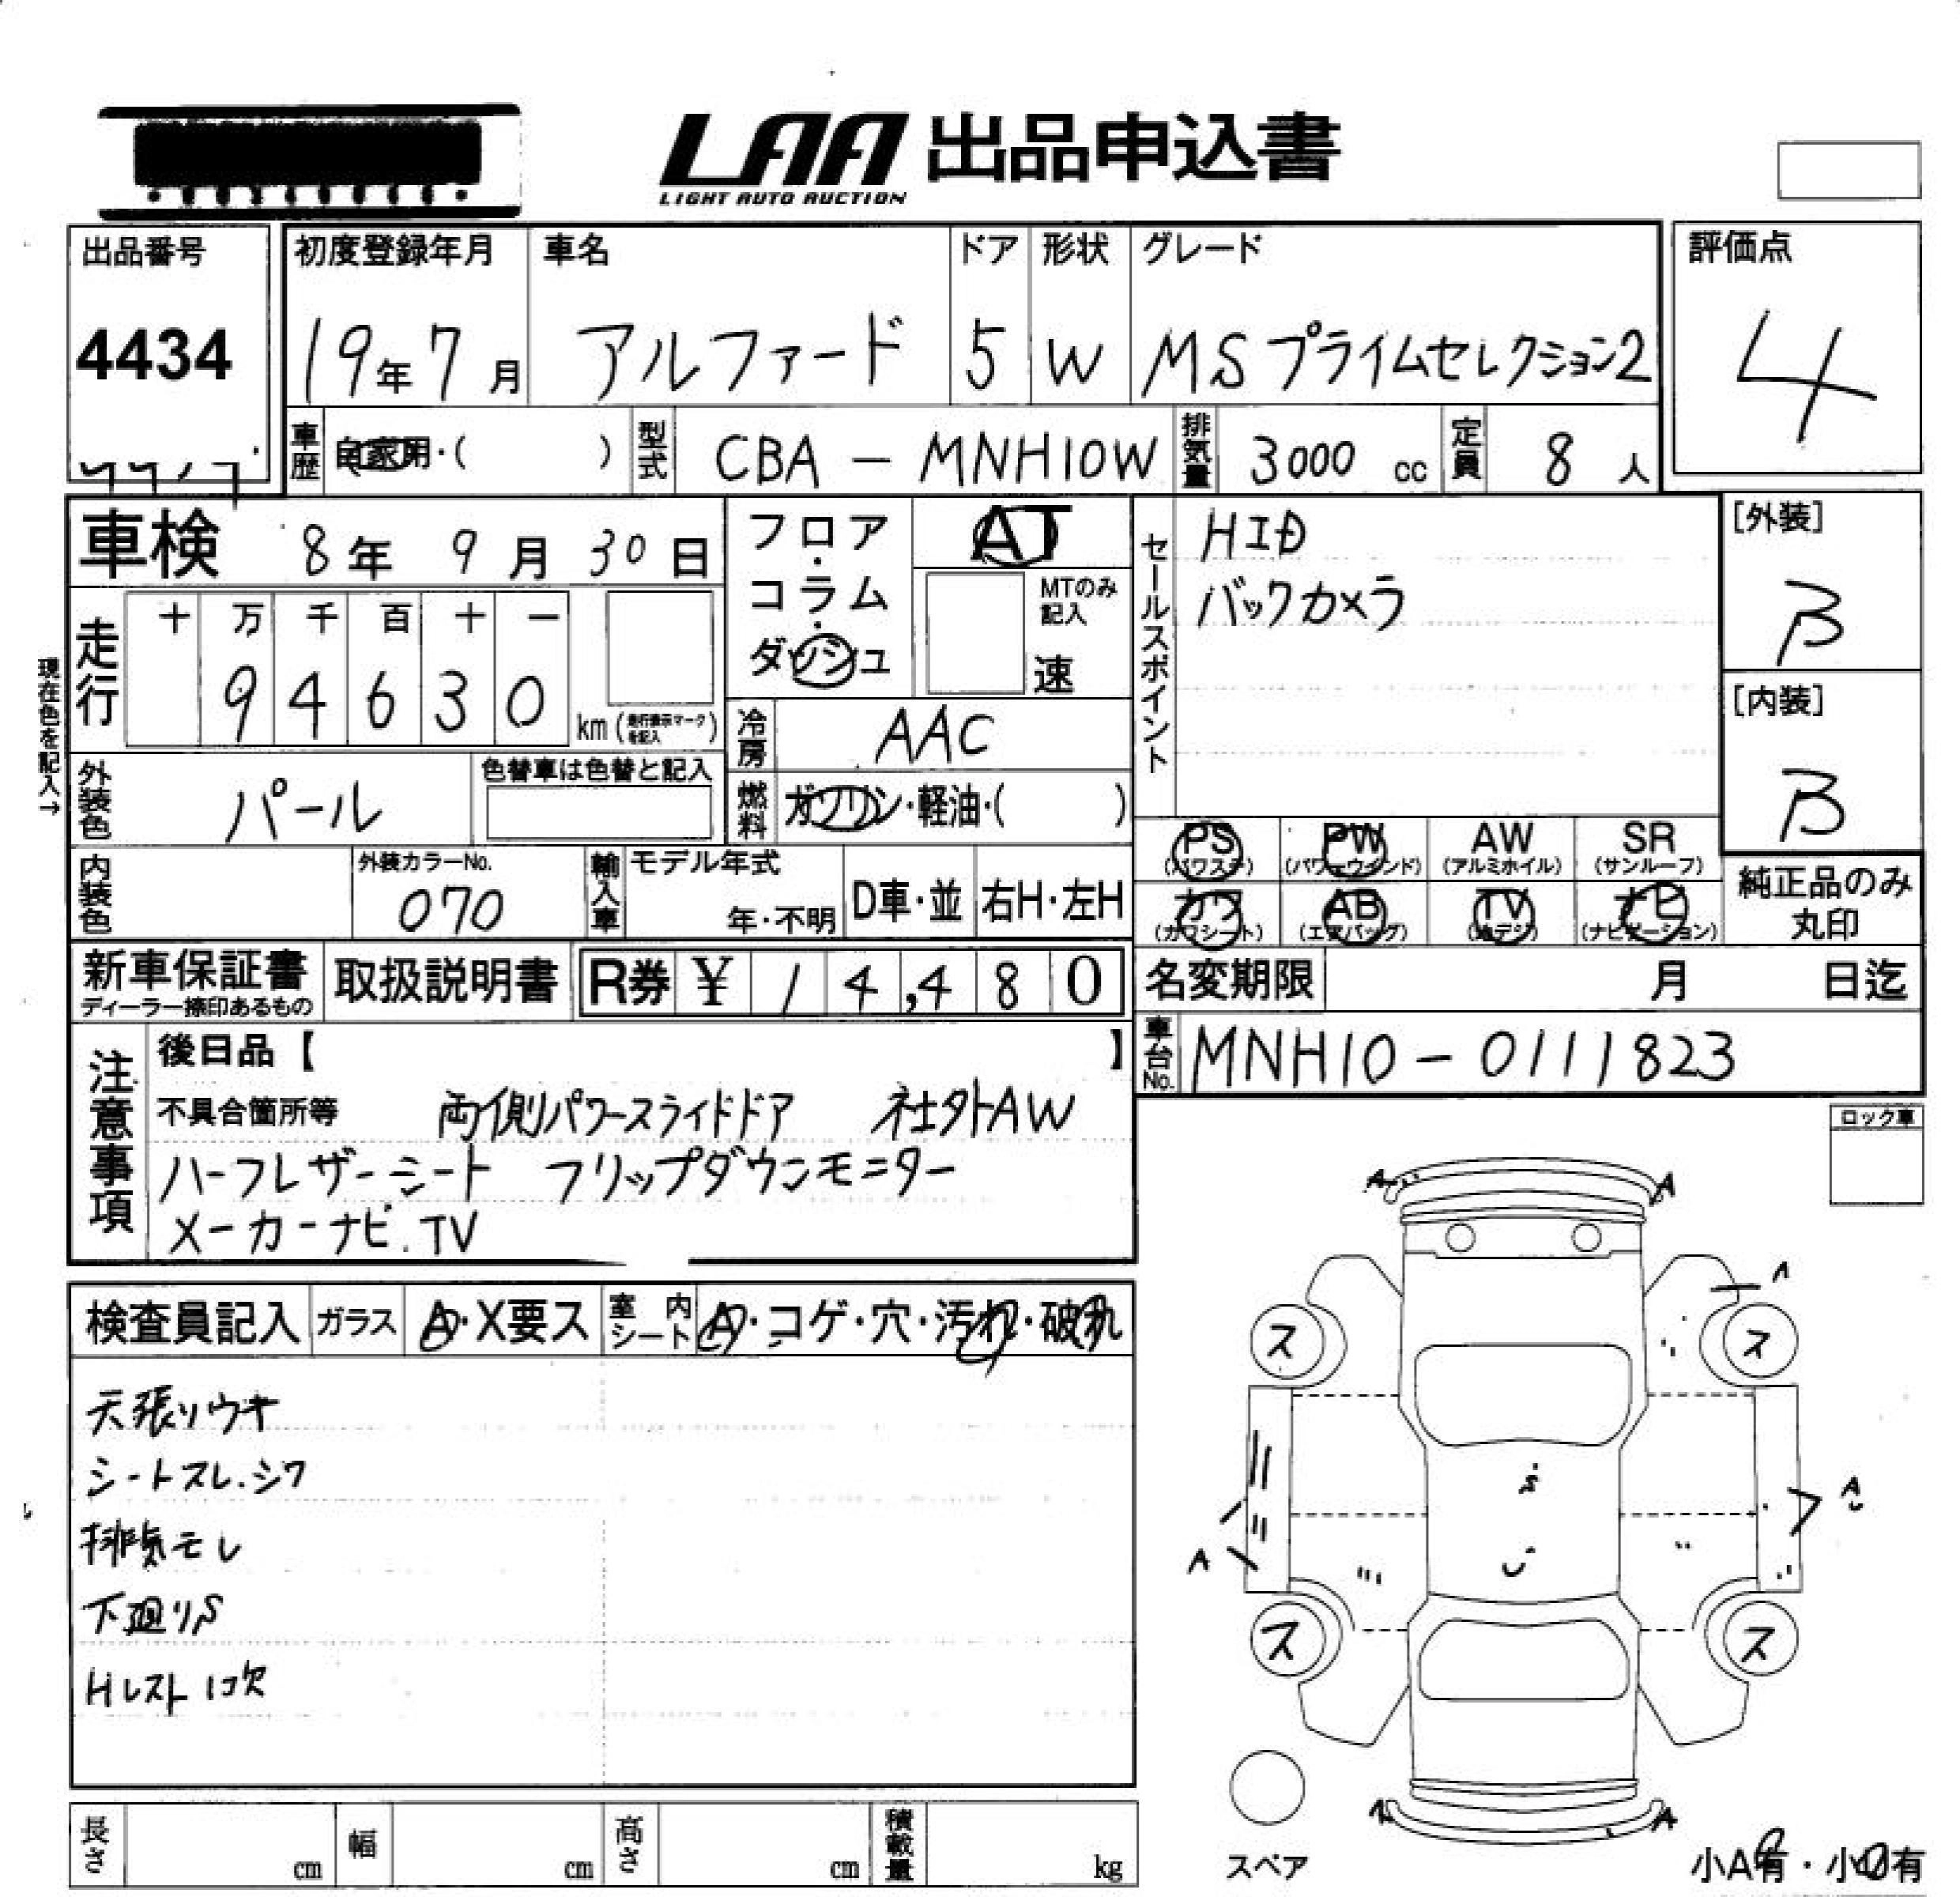 LAA 出品申込書
LIGHT AUTO AUCTION
出品番号
4434
初度登録年月
19年7月
車名
アルファード
ドア
5
形状
W
グレード
MSプライムセレクション2
評価点
4
車歴
自家用・( )
型式
CBA - MNH10W
排気量
3000 cc
定員
8 人
車検 8年 9月 30日
フロア・コラム・ダッシュ
AT
MTのみ記入
速
セールスポイント
HID
バックカメラ
[外装]
B
[内装]
B
現在色を記入→
走行
十 万 千 百 十 一
9 4 6 3 0
km (走行表示マークを記入)
冷房
AAC
外装色
パール
色替車は色替と記入
燃料
ガソリン・軽油・( )
PS
(パワステ)
PW
(パワーウインド)
AW
(アルミホイル)
SR
(サンルーフ)
カワ
(カワシート)
AB
(エアバッグ)
TV
(地デジ)
ナビ
(ナビゲーション)
純正品のみ
丸印
内装色
外装カラーNo.
070
輸入車
モデル年式
年・不明
D車・並
右H・左H
新車保証書
ディーラー捺印あるもの
取扱説明書
R券 ¥ 14,480
名変期限 月 日迄
車台No.
MNH10-0111823
注意事項
後日品【 】
不具合箇所等 両側パワースライドドア 社外AW
ハーフレザーシート フリップダウンモニター
メーカーナビ.TV
ロック車
検査員記入
ガラス
A・X要ス
室内シート
A・コゲ・穴・汚れ・破れ
天張リウキ
シートスレ.シワ
排気モレ
下廻りS
Hレスト1コ欠
A A
A
ス ス
S
A
A
ス ス
A A
スペア
小A有・小U有
長さ cm
幅 cm
高さ cm
積載量 kg